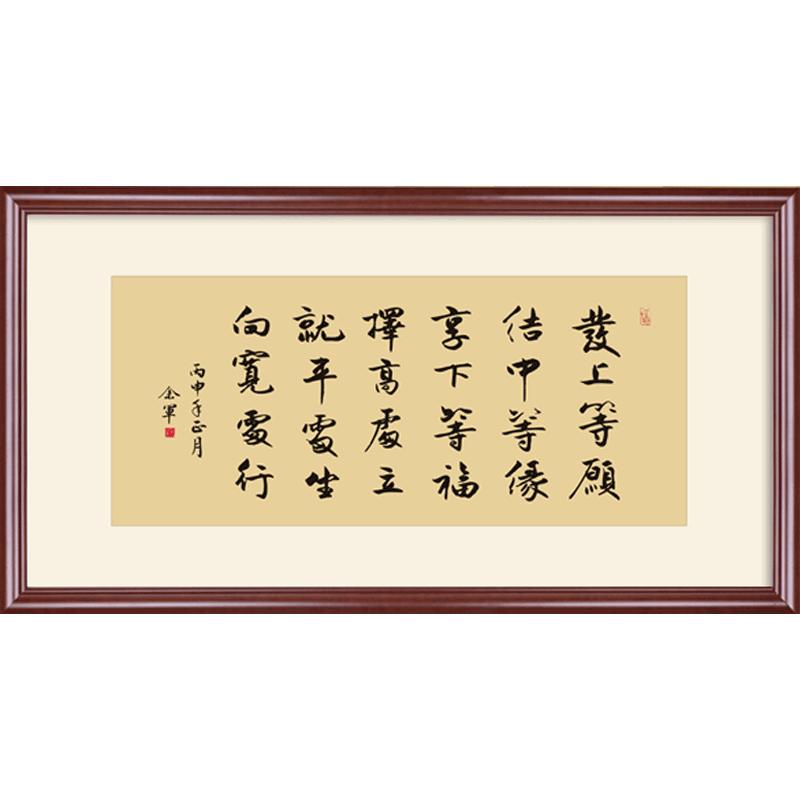 發上等願
結中等緣
享下等福
擇高處立
就平處坐
向寬處行
丙申年正月
金軍